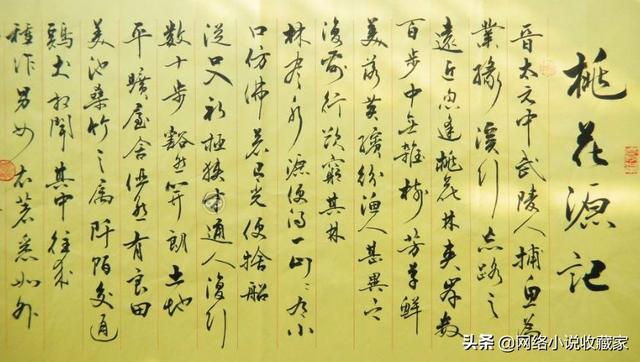 桃花源记
晋太元中武陵人捕鱼为
業缘溪行忘路之
遠近忽逢桃花林夹岸数
百步中无雜树芳草鲜
美落英缤纷渔人甚异之
復前行欲穷其林
林尽水源便得一山山有小
口仿佛若有光便捨船
从口入初极狭才通人復行
数十步豁然開朗土地
平曠屋舍俨然有良田
美池桑竹之属阡陌交通
鸡犬相闻其中往来
種作男女衣著悉如外
头条 @网络小说收藏家